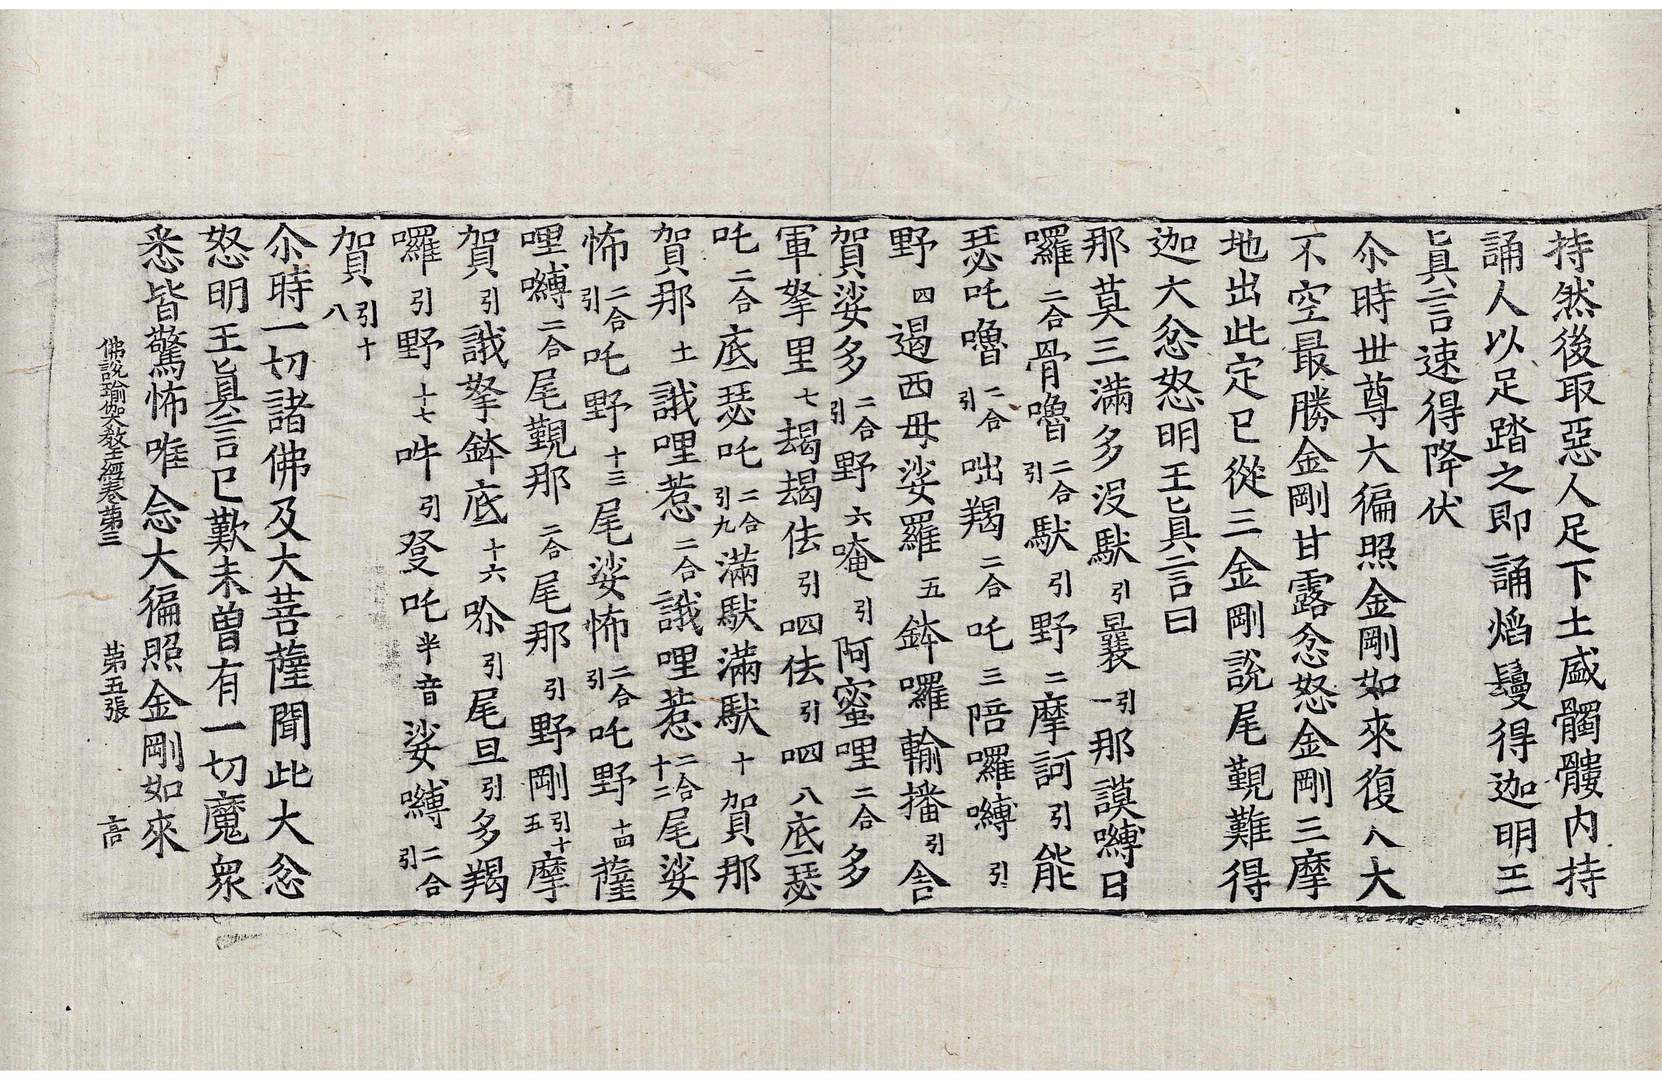 持然後取惡人足下土盛髑髏內持
誦人以足踏之即誦焰鬘得迦明王
眞言速得降伏
尒時世尊大徧照金剛如來復入大
不空最勝金剛甘露忿怒金剛三摩
地出此定已從三金剛說尾覲難得
迦大忿怒明王眞言曰
那莫三滿多没馱引曩引一那謨嚩日
囉二合骨嚕二合引馱引野二摩訶引能
瑟吒嚕二合引咄羯二合吒三陪囉嚩引
野四遏西母娑羅五鉢囉輸播引舍
賀娑多二合引野六唵引阿蜜哩二合多
軍拏里七朅朅佉引呬佉引呬八底瑟
吒二合底瑟吒二合引九滿馱滿馱十賀那
賀那十一誐哩惹二合誐哩惹二合十二尾娑
怖二合引吒野十三尾娑怖二合引吒野十四薩
哩嚩二合尾覲那二合尾那引野剛引十五摩
賀引誐拏鉢底十六嚩引尾旦引多羯
囉引野十七吽引發吒半音娑嚩二合引
賀引十八
尒時一切諸佛及大菩薩聞此大忿
怒明王眞言已歎未曾有一切魔衆
悉皆驚怖唯念大徧照金剛如來
佛說瑜伽大教王經卷第三 第五張 言